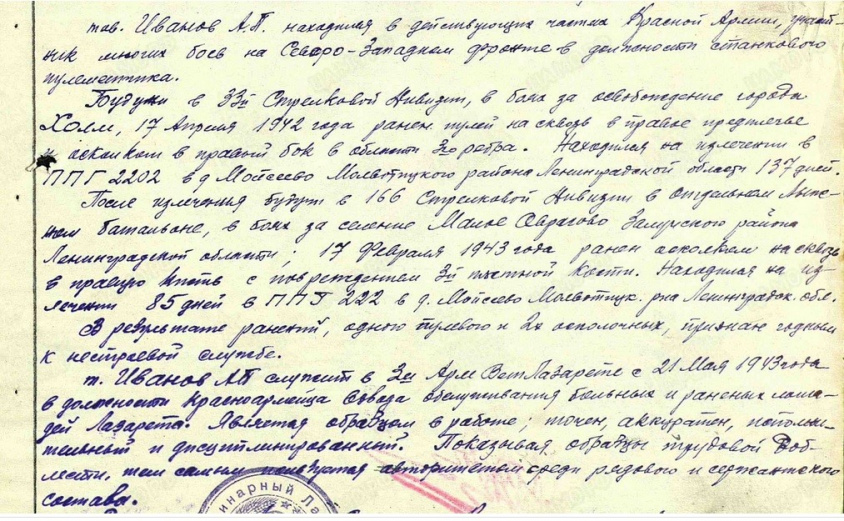 тов. Иванов А.П. находился в действующих частях Красной Армии, участ-
ник многих боев на Северо-Западном фронте в должности станкового
пулеметчика.
Будучи в 33й Стрелковой Дивизии, в боях за освобождение города
Холм, 17 Апреля 1942 года ранен пулей на сквозь в правое предплечье
и осколком в правый бок в области 3го ребра. Находился на излечении в
ППГ 2202 в д Мойсеево Молвотицкого района Ленинградской области 137 дней.
После излечения будучи в 166 Стрелковой Дивизии в Отдельном Лыж-
ном батальоне, в боях за селение Малое Залучского района
Ленинградской области; 17 Февраля 1943 года ранен осколком на сквозь
в правую кисть с повреждением 3й пястной кости. Находился на из-
лечении 85 дней в ППГ 222 в д. Мойсеево Молвотицк. р-на Ленинградск. обл.
В результате ранений, одного пулевого и 2х осколочных, признан годным
к нестроевой службе.
т. Иванов АП служит в 3ем Арм ВетЛазарете с 21 Мая 1943 года
в должности Красноармейца взвода обслуживания больных и раненых лоша-
дей Лазарета. Является образцом в работе; точен, аккуратен, исполни-
тельный и дисциплинированный. Показывая образцы трудовой доб-
лести, тем самым пользуется авторитетом среди рядового и сержантского
состава.
инарный Ла